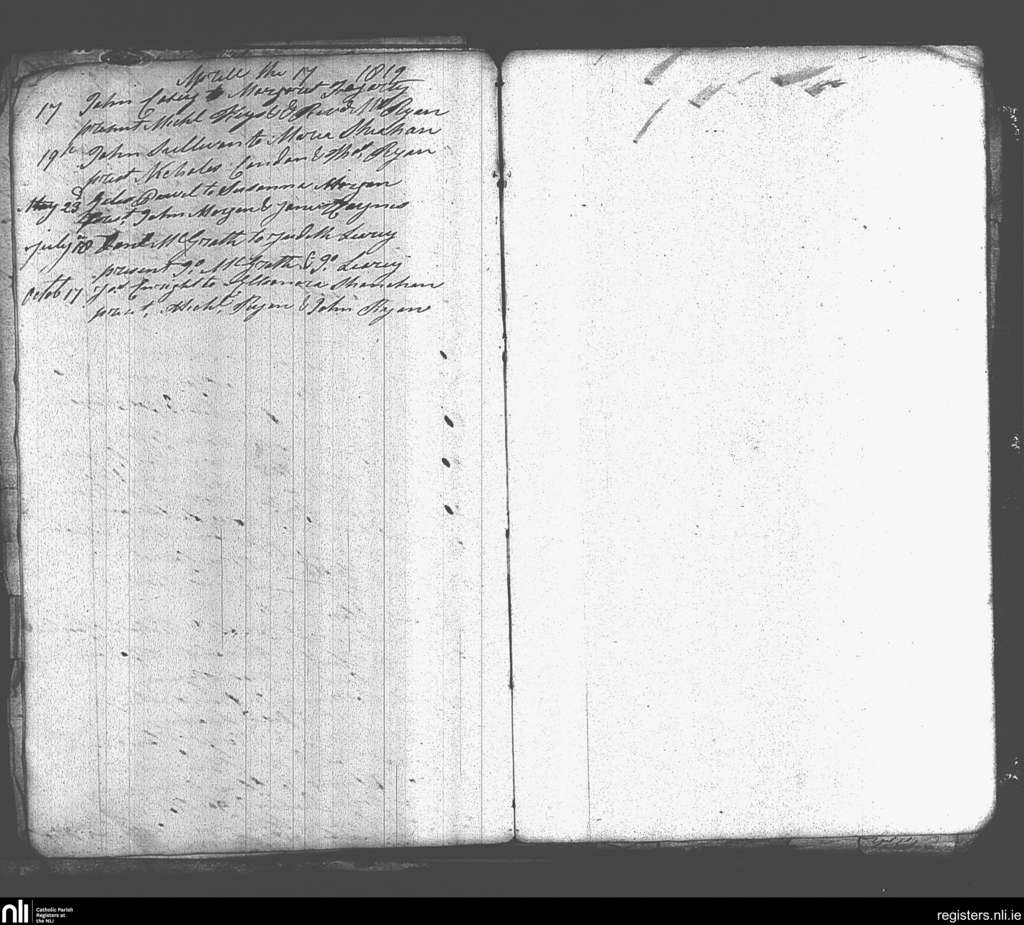 Aprill the 17 1819
17 John Casey to Margaret Fogerty
present Michl Keys & Revd Mr Ryan
19th John Sullivan to Maria Sheahan
prest Nicholas Condon & Thos Ryan
May 23d Giles Powel to Susanna Morgan
prest John Morgan & Jane Haynes
July 18 McGrath to Judith Leary
present Jo. McGrath & Jo. Leary
Octob 17 Jas Enright to Elleonora Shanahan
prest, Michl Ryan & John Ryan
nli
Catholic Parish
Registers at
the NLI
registers.nli.ie